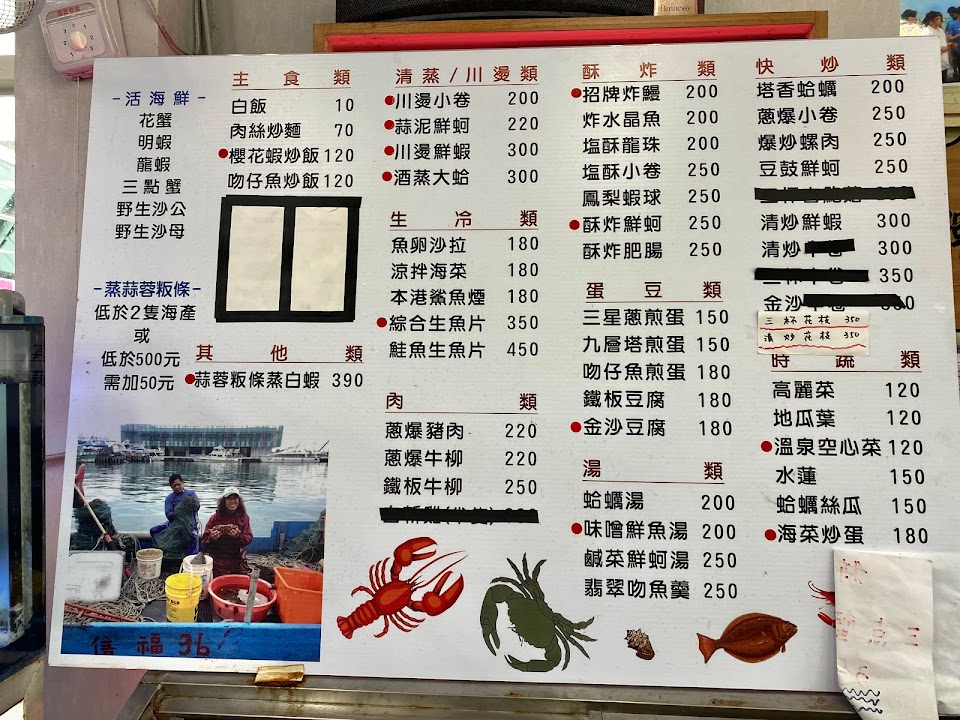 Hennessy
-活海鮮-
花蟹
明蝦
龍蝦
三點蟹
野生沙公
野生沙母
-蒸蒜蓉粄條-
低於2隻海產
或
低於500元
需加50元
主食類
白飯 10
肉絲炒麵 70
櫻花蝦炒飯 120
吻仔魚炒飯 120
其他類
蒜蓉粄條蒸白蝦 390
清蒸/川燙類
川燙小卷 200
蒜泥鮮蚵 220
川燙鮮蝦 300
酒蒸大蛤 300
生冷類
魚卵沙拉 180
涼拌海菜 180
本港鯊魚煙 180
綜合生魚片 350
鮭魚生魚片 450
肉類
蔥爆豬肉 220
蔥爆牛柳 220
鐵板牛柳 250
酥炸類
招牌炸鰻 200
炸水晶魚 200
塩酥龍珠 200
塩酥小卷 250
鳳梨蝦球 250
酥炸鮮蚵 250
酥炸肥腸 250
蛋豆類
三星蔥煎蛋 150
九層塔煎蛋 150
吻仔魚煎蛋 180
鐵板豆腐 180
金沙豆腐 180
湯類
蛤蠣湯 200
味噌鮮魚湯 200
鹹菜鮮蚵湯 250
翡翠吻魚羹 250
快炒類
塔香蛤蠣 200
蔥爆小卷 250
爆炒螺肉 250
豆鼓鮮蚵 250
清炒鮮蝦 300
清炒 300
350
金沙
三杯花枝 350
清炒花枝 350
時蔬類
高麗菜 120
地瓜葉 120
溫泉空心菜 120
水蓮 150
蛤蠣絲瓜 150
海菜炒蛋 180
福 36